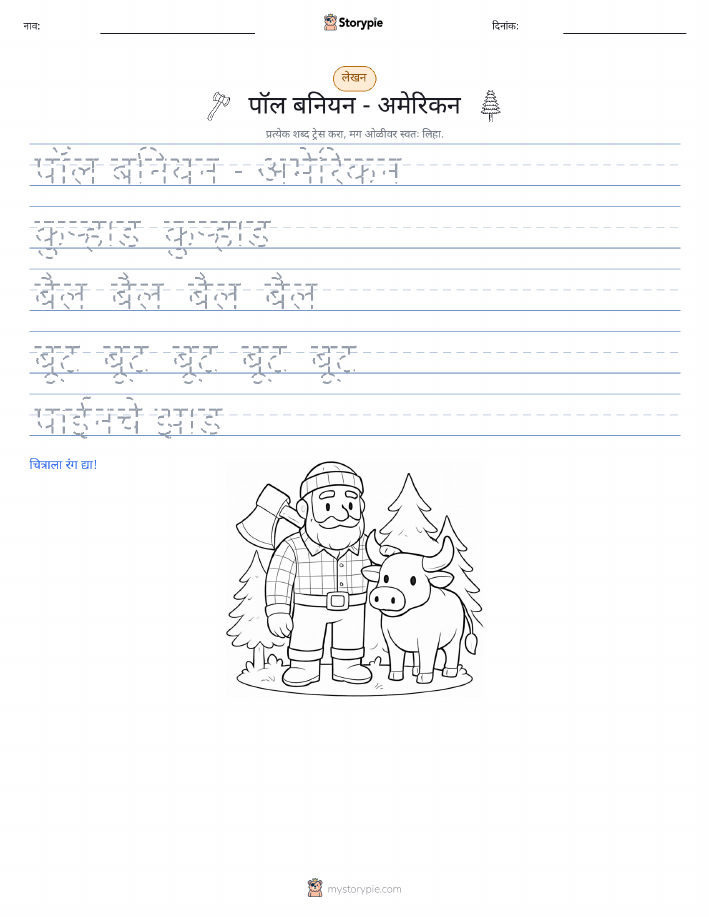 नाव:
Storypie
दिनांक:
लेखन
पॉल बनियन - अमेरिकन
प्रत्येक शब्द ट्रेस करा, मग ओळीवर स्वतः लिहा.
पॉल बनियन - अमेरिकन
कुऱ्हाड कुऱ्हाड
बैल बैल बैल बैल
बूट बूट बूट बूट बूट
पाईनचे झाड
चित्राला रंग द्या!
mystorypie.com